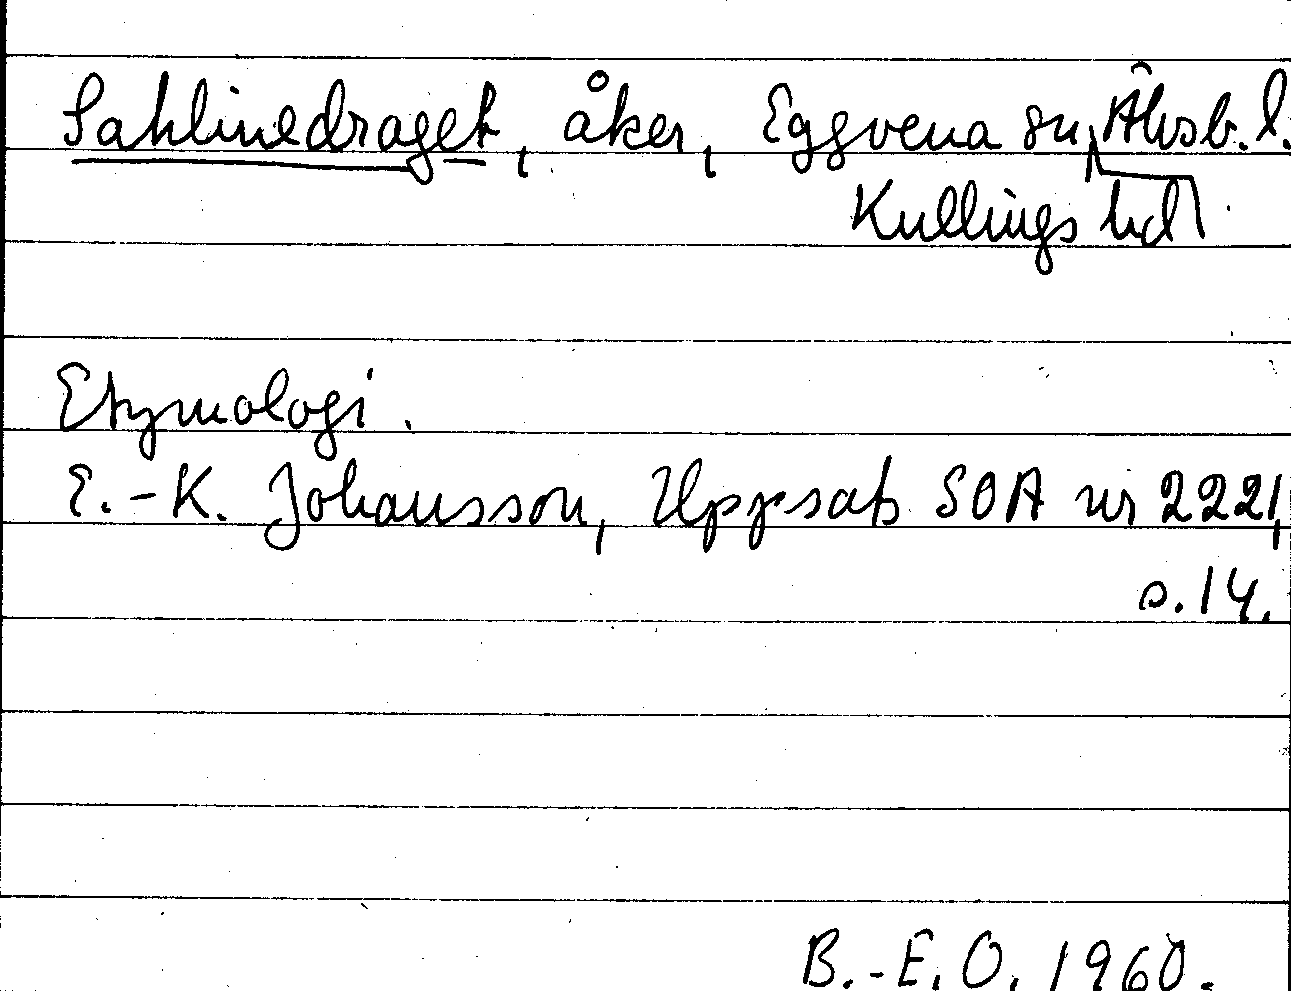 Sahlinedraget, åker, Eggvena sn, Älvsb. l.
Kullings hd
Etymologi.
E.-K. Johansson, Uppsats SOA nr 2221,
s. 14.
B.-E. O. 1960.